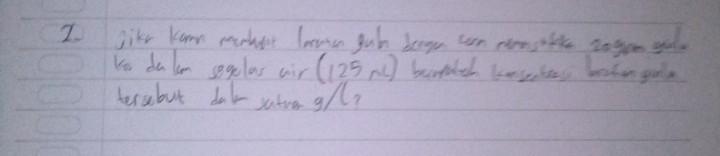 2. Jika kamu membuat larutan gula dengan cara memasukkan 20 gram gula
ke dalam segelas air (125 mL) berapakah konsentrasi larutan gula
tersebut dalam satuan g/L?